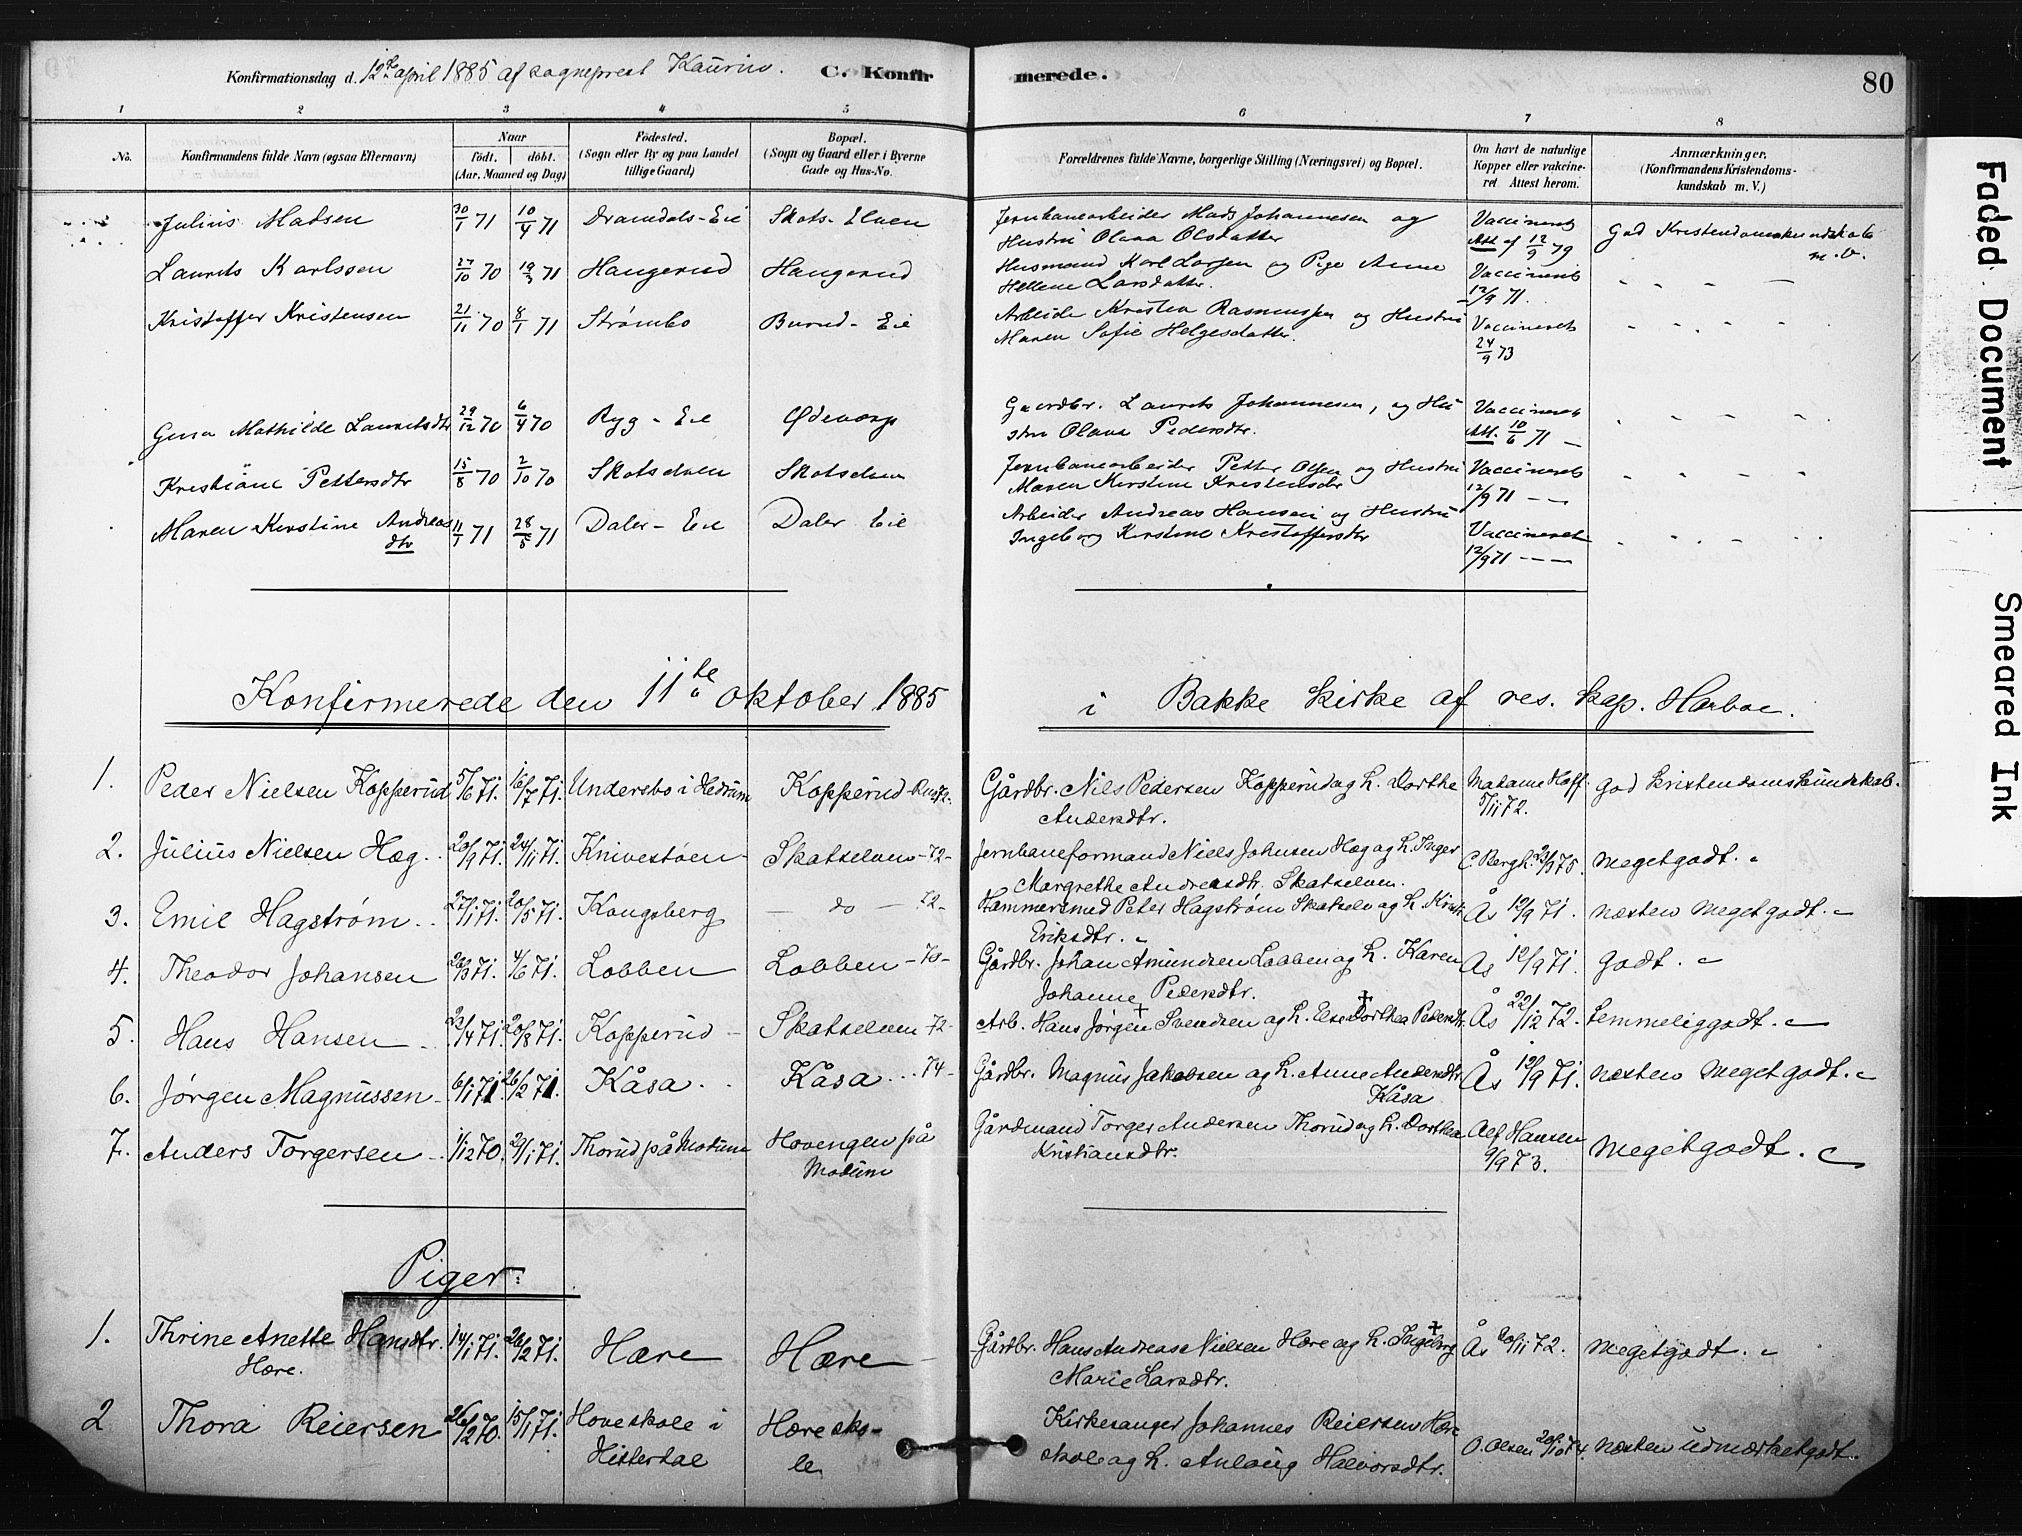 Konfirmationsdag d. 12te april 1885 af sogneprest Kaurin. C. Konfirmerede. 80
1 2 3 4 5 6 7 8
No. Konfirmandens fulde Navn (ogsaa Efternavn) Naar født. døbt. (Aar, Maaned og Dag) Fødested. (Sogn eller By og paa Landet tillige Gaard) Bopæl. (Sogn og Gaard eller i Byerne Gade og Hus-No. Forældrenes fulde Navne, borgerlige Stilling (Næringsvei) og Bopæl. Om havt de naturlige Kopper eller vakcineret. Attest herom. Anmærkninger. (Konfirmandens Kristendomskundskab m. V.)
Julius Madsen 30/1 71 10/4 71 Dramdals-Eie Skots-Elven Jernbanearbeider Mads Johannesen og Vaccineret God Kristendomskundskab
Hustru Olava Olsdatter Att. af 12/9 79 m.v.
Laurits Karlssen 27/10 70 19/3 71 Haugerud Haugerud Husmand Karl Larsen og Pige Anne Vaccineret
Hellene Larsdatter. 12/9 71.
Kristoffer Kristensen 21/11 70 8/1 71 Strømbo Burud-Eie Arbeider Kristen Rasmussen og Hustru Vaccineret
Maren Sofie Helgesdatter. 24/9 73
Gina Mathilde Lauritsdtr 29/12 70 6/4 70 Ryg-Eie Ødevorp Gaardbr. Laurits Johannesen, og Hu Vaccineret
stru Olava Pedersdtr. Att. 10/6 71 —
Kristiane Pettersdtr 15/8 70 2/10 70 Skotselven Skotselven Jernbanearbeider Petter Olsen og Hustru Vaccineret
Maren Kirstine Kristensdtr 12/9 71 ——
Maren Kirstine Andreas 11/1 71 28/5 71 Daler-Eie Daler Eie Arbeider Andreas Hansen og Hustru Vaccineret
dtr Ingeborg Kirstine Kristoffersdtr 12/9 71 ———
Konfirmerede den 11te oktober 1885 i Bakke kirke af res. kap. Harboe.
1. Peder Nielsen Kopperud 5/6 71. 16/7 71. Undersbo i Hedrum Kopperud Gårdbr. Nils Pedersen Kopperud og h. Dorthe Madame Hoff God kristendomskundskab.
Andersdtr. 5/11 72.
2. Julius Nielsen Hæg. 20/9 71. 24/11 71. Knivestøen Skotselven -72- Jernbaneformand Niels Johnsen Hæg og h. Inger C. Bergh. 23/9 75. Megetgodt.
Margrethe Andreasdtr. Skotselven.
3. Emil Hagstrøm. 27/1 71. 20/5 71. Kongsberg — do — 72- Hammersmed Peter Hagstrøm Skotselv og h. Kristi Ås 12/9 71. Næsten megetgodt.
Eriksdtr.
4. Theodor Johansen 26/3 71. 4/6 71. Lobben Lobben -70- Gårdbr. Johan Amundsen Lobben og h. Karen Ås 12/9 71. Godt.
Johanne Pedersdtr.
5. Hans Hansen 22/4 71. 20/8 71. Kopperud Skotselven 72- Arb. Hans Jørgen Svendsen og h. Else Dorthea Pedersdtr. Ås 22/12 72. Temmeliggodt.
6. Jørgen Magnussen 6/1 71. 26/2 71. Kåsa Kåsa 74- Gårdbr. Magnus Jakobsen og h. Anne Andersdtr. Ås 12/9 71. Næsten megetgodt.
Kåsa
7. Anders Torgersen 1/12 70. 29/1 71. Thorud på Modum Hovengen på Gårdmand Torger Andersen Thorud og h. Dorthea Alf Hansen Megetgodt.
Modum Kristiansdtr. 9/9 73.
Piger.
1. Thrine Anette Hansdtr. 14/1 71. 26/2 71. Hære Hære Gårdbr. Hans Andreas Nielsen Hære og h. Ingeborg Ås 20/11 72. Megetgodt.
Hære. Marie Larsdtr.
2 Thora Reiersen 26/12 70. 15/1 71. Hoveskole i Hære sko- Kirkesanger Johannes Reiersen Hære
Hitterdal le skole og h. Anlaug Halvorsdtr. O. Olsen 20/10 74. Næsten udmærketgodt.
Faded Document
Smeared Ink